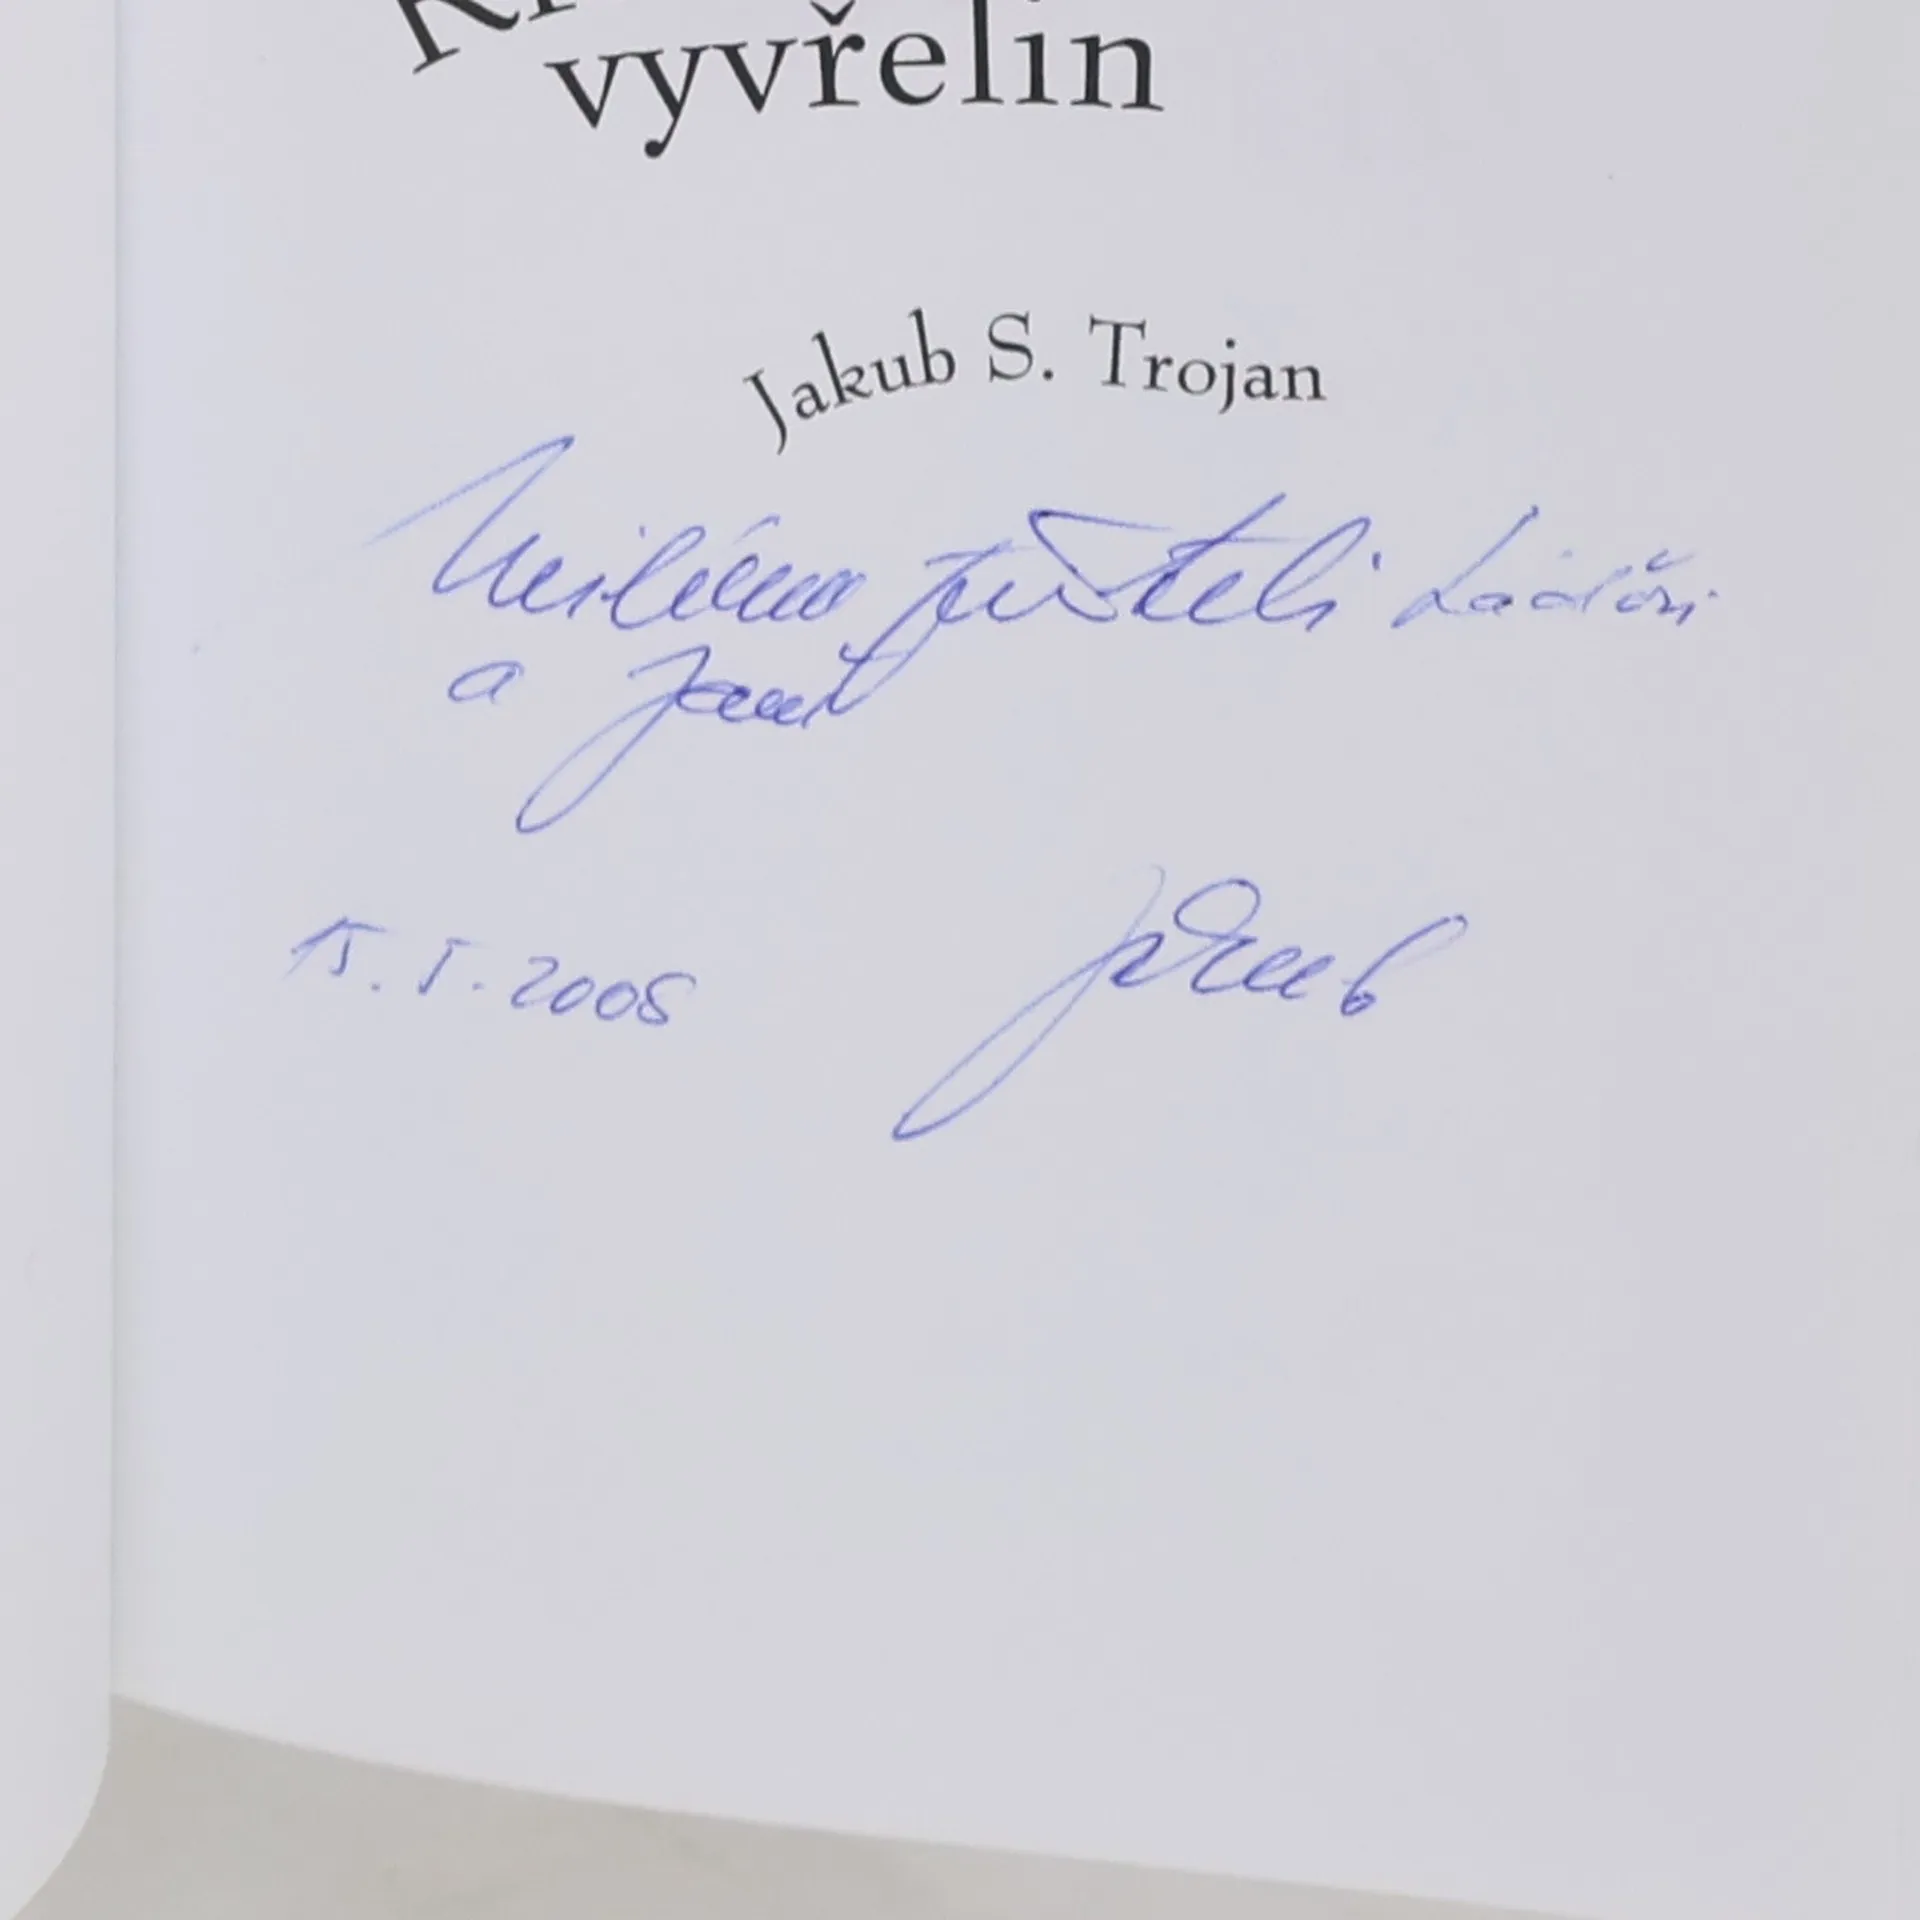 vyvřelin
Jakub S. Trojan
Milému příteli Láďovi
a Janě
15. 5. 2005
Jakub